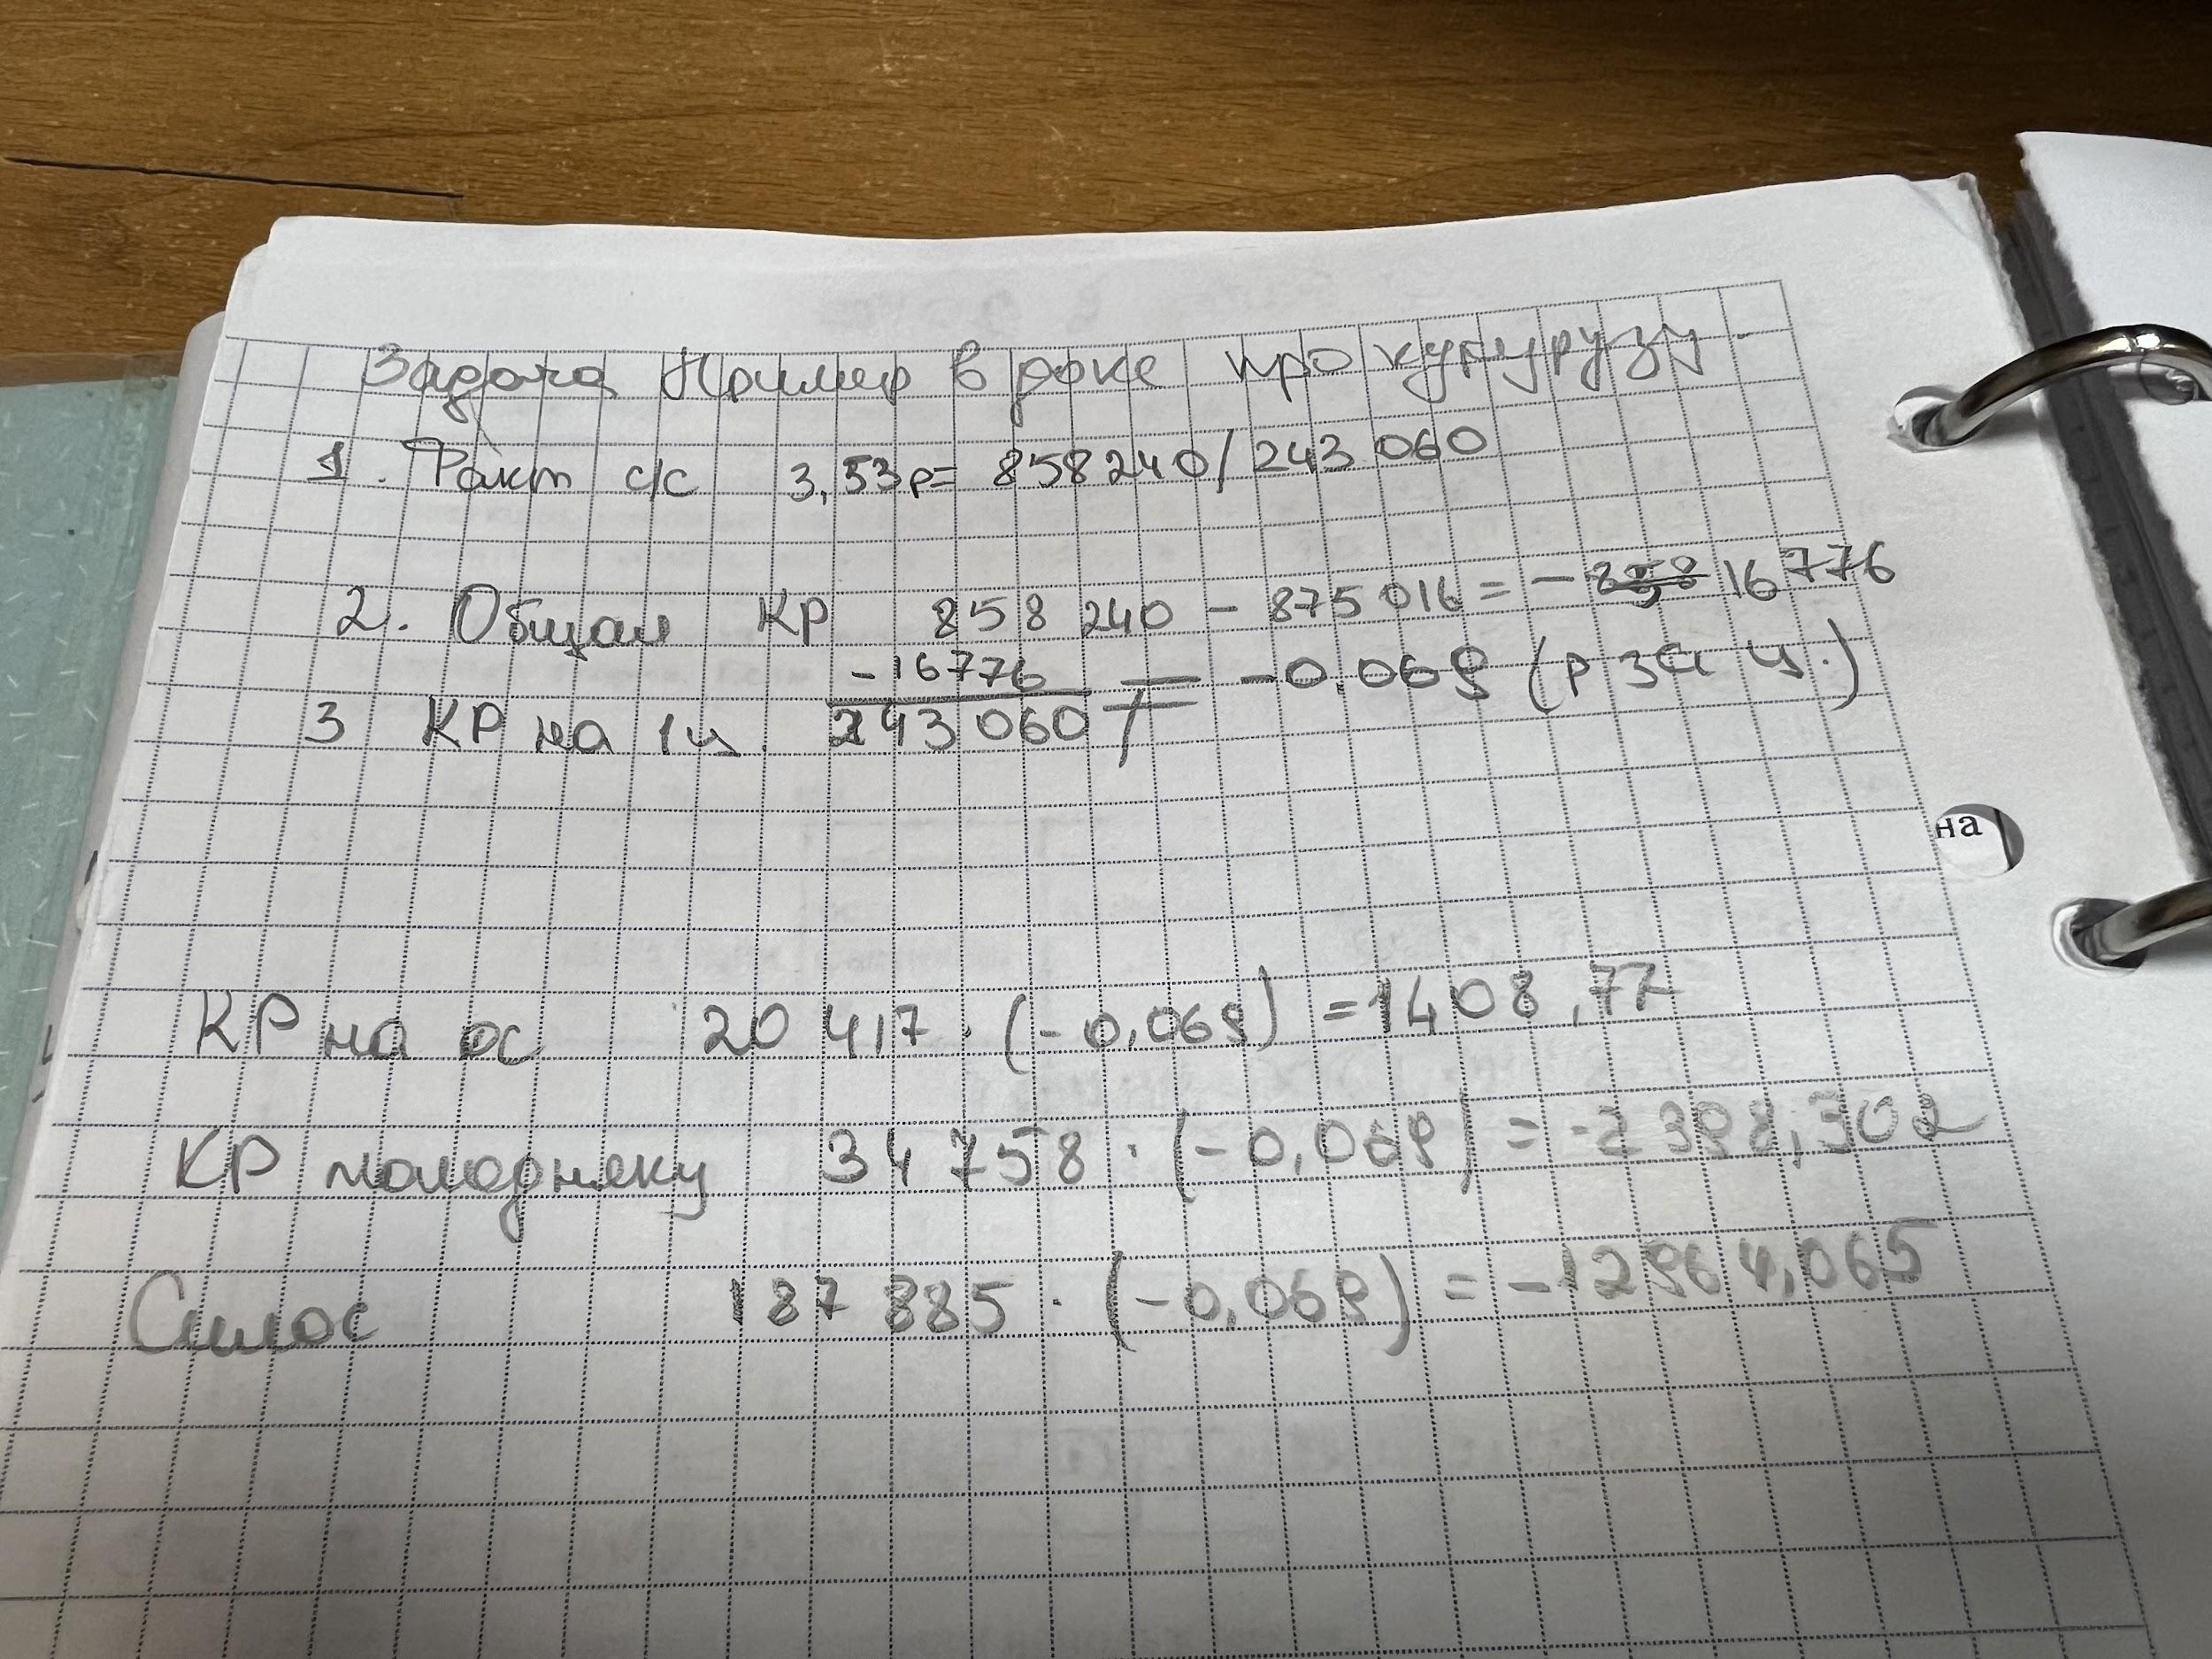 Задача Пример в доке про кукурузу.
1. Факт с/с 3,53р= 858240/243 060
2. Общая КР 858 240 - 875016 = - 16776
3 КР на 1ц. -16776/243 060 = -0,069 (р за ц.)
на
КР на ос 20 417 · (-0,069) = 1408,77
КР молодняку 34 758 · (-0,069) = -2 398,302
Силос 187 885 · (-0,069) = -12964,065